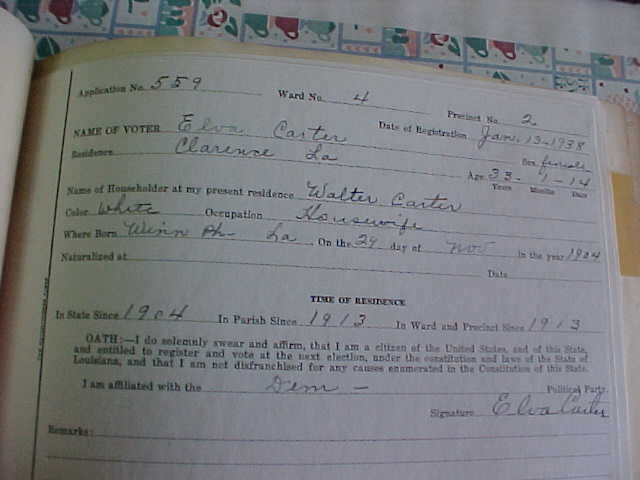 Application No. 559 Ward No. 4 Precinct No. 2
NAME OF VOTER Elva Carter Date of Registration Jan. 13-1938
Residence Clarence La Sex female
Age 33- 1-14
Years Months Days
Name of Householder at my present residence Walter Carter
Color White Occupation Housewife
Where Born Winn Ph- La On the 29 day of Nov in the year 1904
Naturalized at Date
TIME OF RESIDENCE
In State Since 1904 In Parish Since 1913 In Ward and Precinct Since 1913
OATH:—I do solemnly swear and affirm, that I am a citizen of the United States, and of this State,
and entitled to register and vote at the next election, under the constitution and laws of the State of
Louisiana, and that I am not disfranchised for any causes enumerated in the Constitution of this State.
I am affiliated with the Dem - Political Party.
Signature Elva Carter
Remarks: